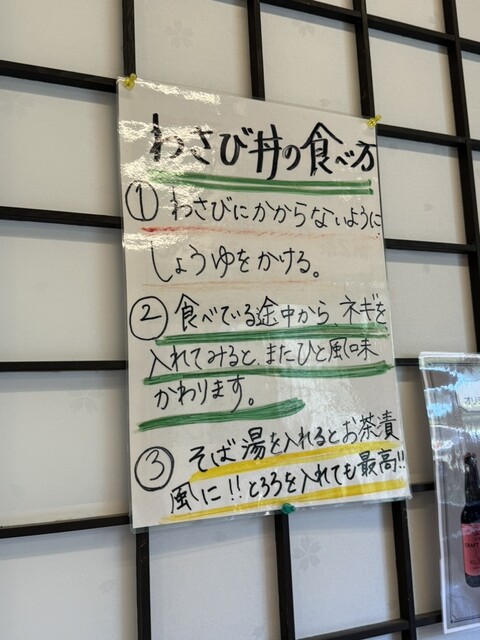 わさび丼の食べ方
① わさびにかからないように
しょうゆをかける。
② 食べている途中から、ネギを
入れてみると、またひと風味
かわります。
③ そば湯を入れるとお茶漬
風に!! とろろを入れても最高!!
オリジ
CRAFT